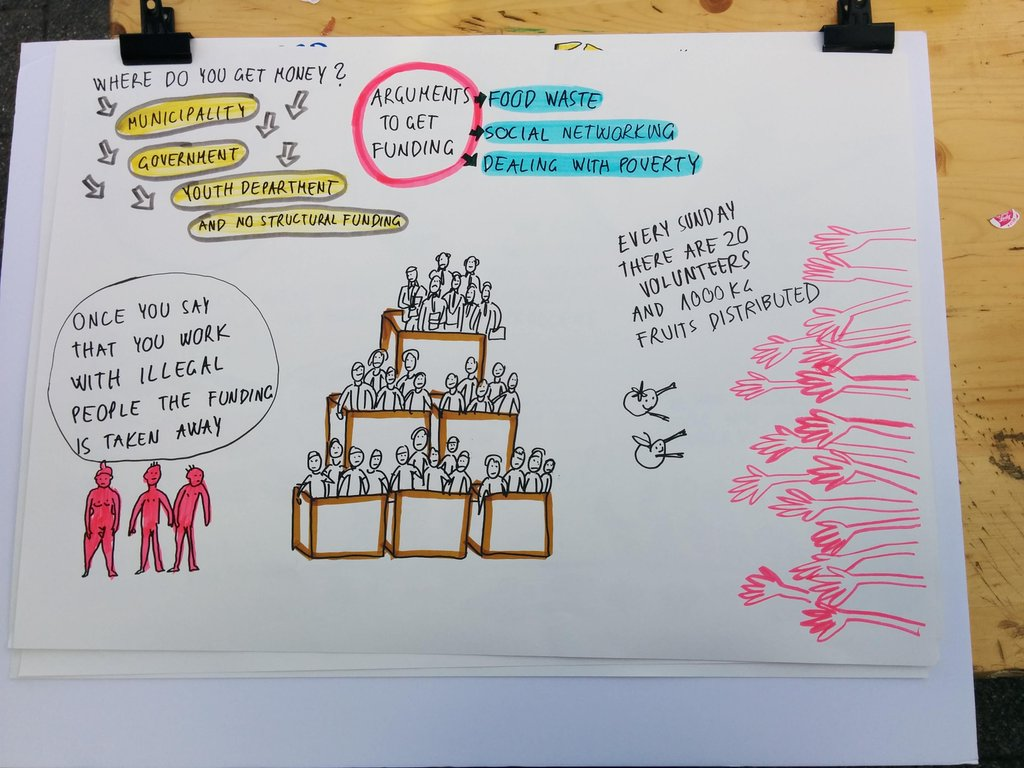 WHERE DO YOU GET MONEY?
MUNICIPALITY
GOVERNMENT
YOUTH DEPARTMENT
AND NO STRUCTURAL FUNDING
ARGUMENTS
TO GET
FUNDING
FOOD WASTE
SOCIAL NETWORKING
DEALING WITH POVERTY
EVERY SUNDAY
THERE ARE 20
VOLUNTEERS
AND 1000 KG
FRUITS DISTRIBUTED
ONCE YOU SAY
THAT YOU WORK
WITH ILLEGAL
PEOPLE THE FUNDING
IS TAKEN AWAY